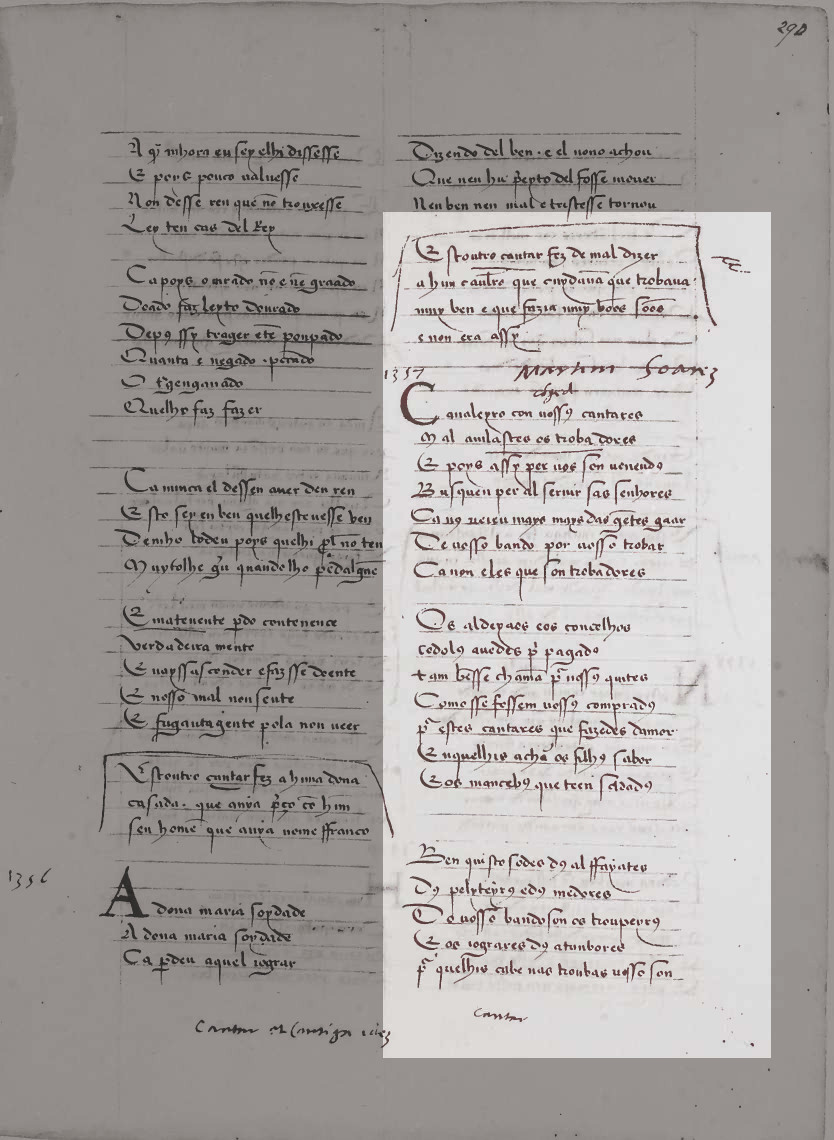 290
A q̄ mhora eu sey elhi dissesse
E poys pouco valuesse
Non desse ren que nō trouxesse
Ley ten cas del Rey
Ca poys o mrado nō e nē graado
Doado faz leyto dourado
Depꝯ ssy trager
Quanta e negado
O engenado
Quelhy faz fazer
Ca nunca el dessen auer den ren
E sto sey en ben quelhesteuesse ben
De mho poys quelhi nō ten
Muytolhe quandolho
E matenente pdo contenence
Verdadeira mente
E vayssasconder efazsse doente
E nosso mal non sente
E fuganta gente pola non veer
Estoutro cantar fez a hũna dona
casada . que auya p̄ço cō hun
seu homē que auya nome ffranco
1356
A dona maria soydade
A dona maria soydade
Ca pdeu aquel iograr
Cantar et
Dizendo del ben . e el nono achou
Que nen hū p̄eyto del fosse mouer
Nen ben nen mal e tristesse tornou
Estoutro cantar fez de mal dizer
a hun caualrō que cuydauā que trobaua
muy ben e que fazia muy boōs soōs
e non era assy
1357 Martim Soarez
Caualeyro con uossꝯ cantares
Mal auilastes os troba dores
E poys assy per uos son uençudꝯ
Busquen per al seruir sas senhores
Ca uꝯ ueieu mays das gētes gaar
De uosso bando por uosso trobar
Ca non eles que son trobadores
Os aldeyaos eos concelhos
todolꝯ auedes p̄ pagadꝯ
tam besse chamā p̄ uossꝯ quites
Comosse fossem uossꝯ compradꝯ
p̄ estes cantares que fazedes damor
En quelhis achā os filhꝯ sabor
E os mancebꝯ que teen soldadꝯ
Ben quisto sodes dꝯ alffayates
Dꝯ peliteyrꝯ e dꝯ
De uosso bando son os tronpeyrꝯ
E os iograres dꝯ atanbores
p̄ quelhis cabe nas tronbas uosso son
cantar